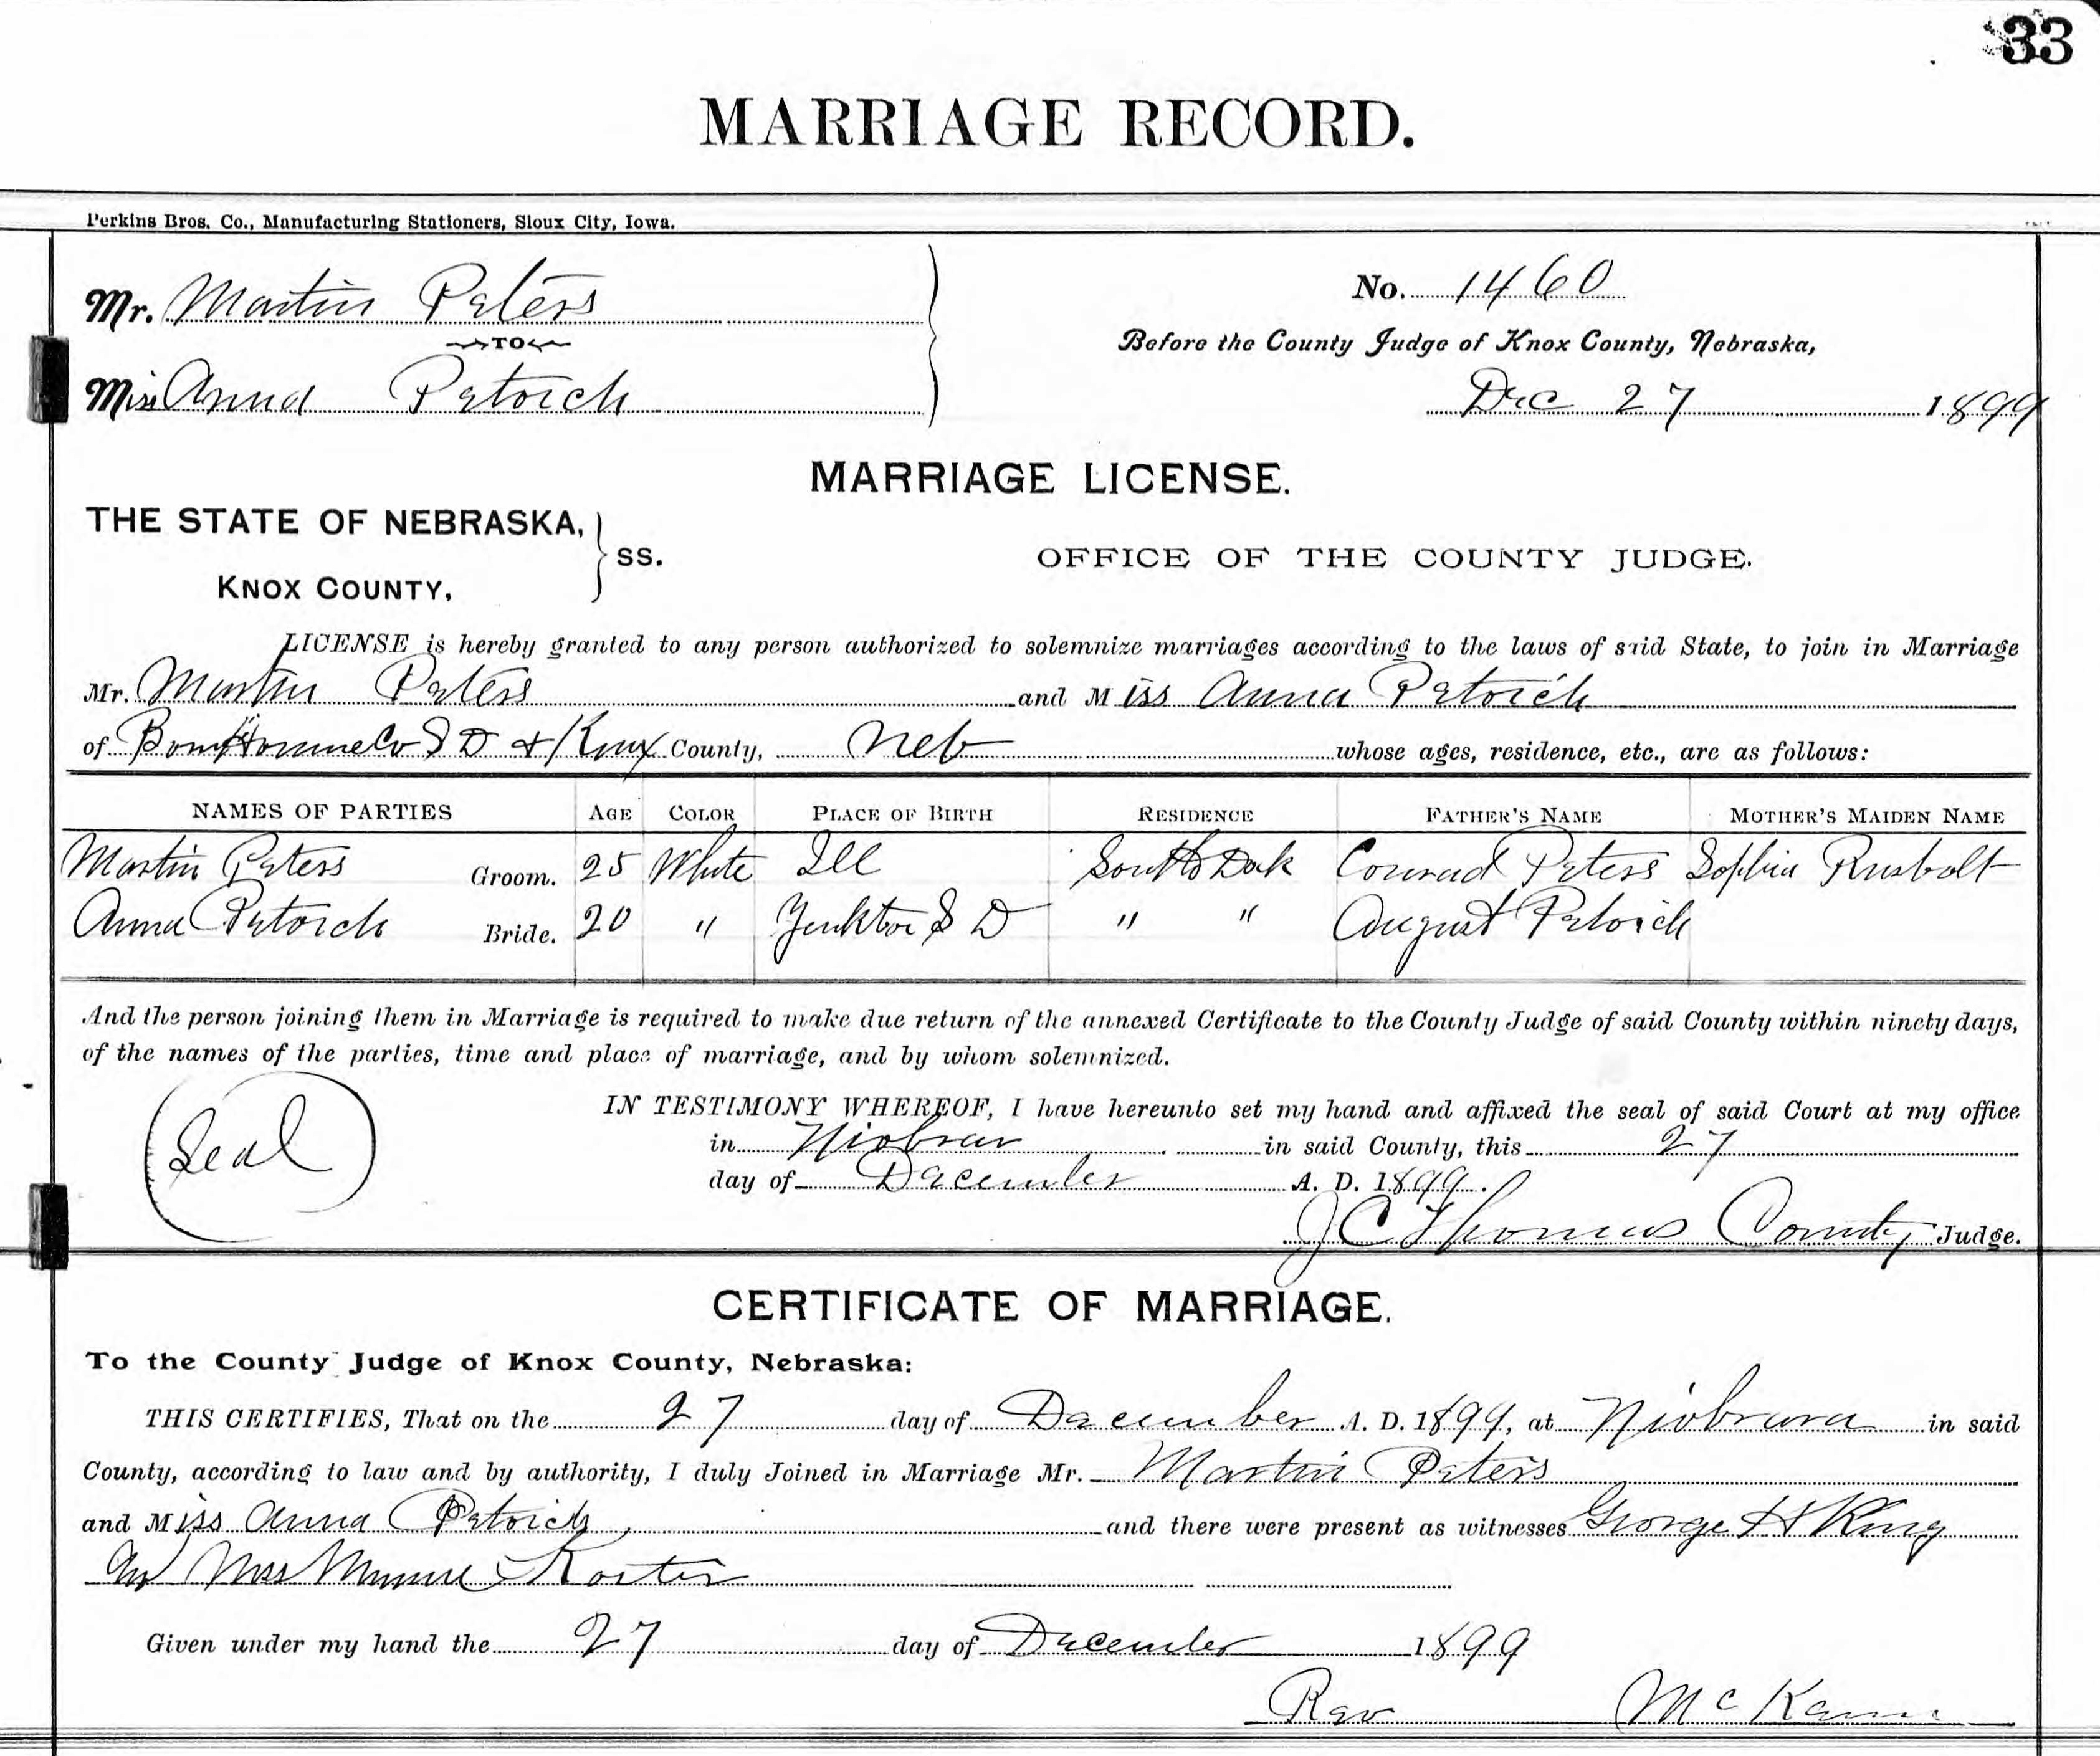 33
MARRIAGE RECORD.
Perkins Bros. Co., Manufacturing Stationers, Sioux City, Iowa.
Mr. Martin Peters
TO
Miss Anna Petorch
No. 1460
Before the County Judge of Knox County, Nebraska,
Dec 27 1899
MARRIAGE LICENSE.
THE STATE OF NEBRASKA,
KNOX COUNTY,
SS.
OFFICE OF THE COUNTY JUDGE.
LICENSE is hereby granted to any person authorized to solemnize marriages according to the laws of said State, to join in Marriage
Mr. Martin Peters and Miss Anna Petorch
of Bon Homme Co S D & Knox County, Neb whose ages, residence, etc., are as follows:
NAMES OF PARTIES AGE COLOR PLACE OF BIRTH RESIDENCE FATHER'S NAME MOTHER'S MAIDEN NAME
Martin Peters Groom. 25 White Ill South Dak Conrad Peters Sophia Rusbolt
Anna Petorch Bride. 20 " Yenkton S D " " August Petorch
And the person joining them in Marriage is required to make due return of the annexed Certificate to the County Judge of said County within ninety days,
of the names of the parties, time and place of marriage, and by whom solemnized.
Seal
IN TESTIMONY WHEREOF, I have hereunto set my hand and affixed the seal of said Court at my office
in Niobrar in said County, this 27
day of December A. D. 1899.
J C Thomas County Judge.
CERTIFICATE OF MARRIAGE.
To the County Judge of Knox County, Nebraska:
THIS CERTIFIES, That on the 27 day of December A. D. 1899, at Niobrara in said
County, according to law and by authority, I duly Joined in Marriage Mr. Martin Peters
and Miss Anna Petorch and there were present as witnesses George H King
Miss Minnie Koster
Given under my hand the 27 day of December 1899
Rev McKam